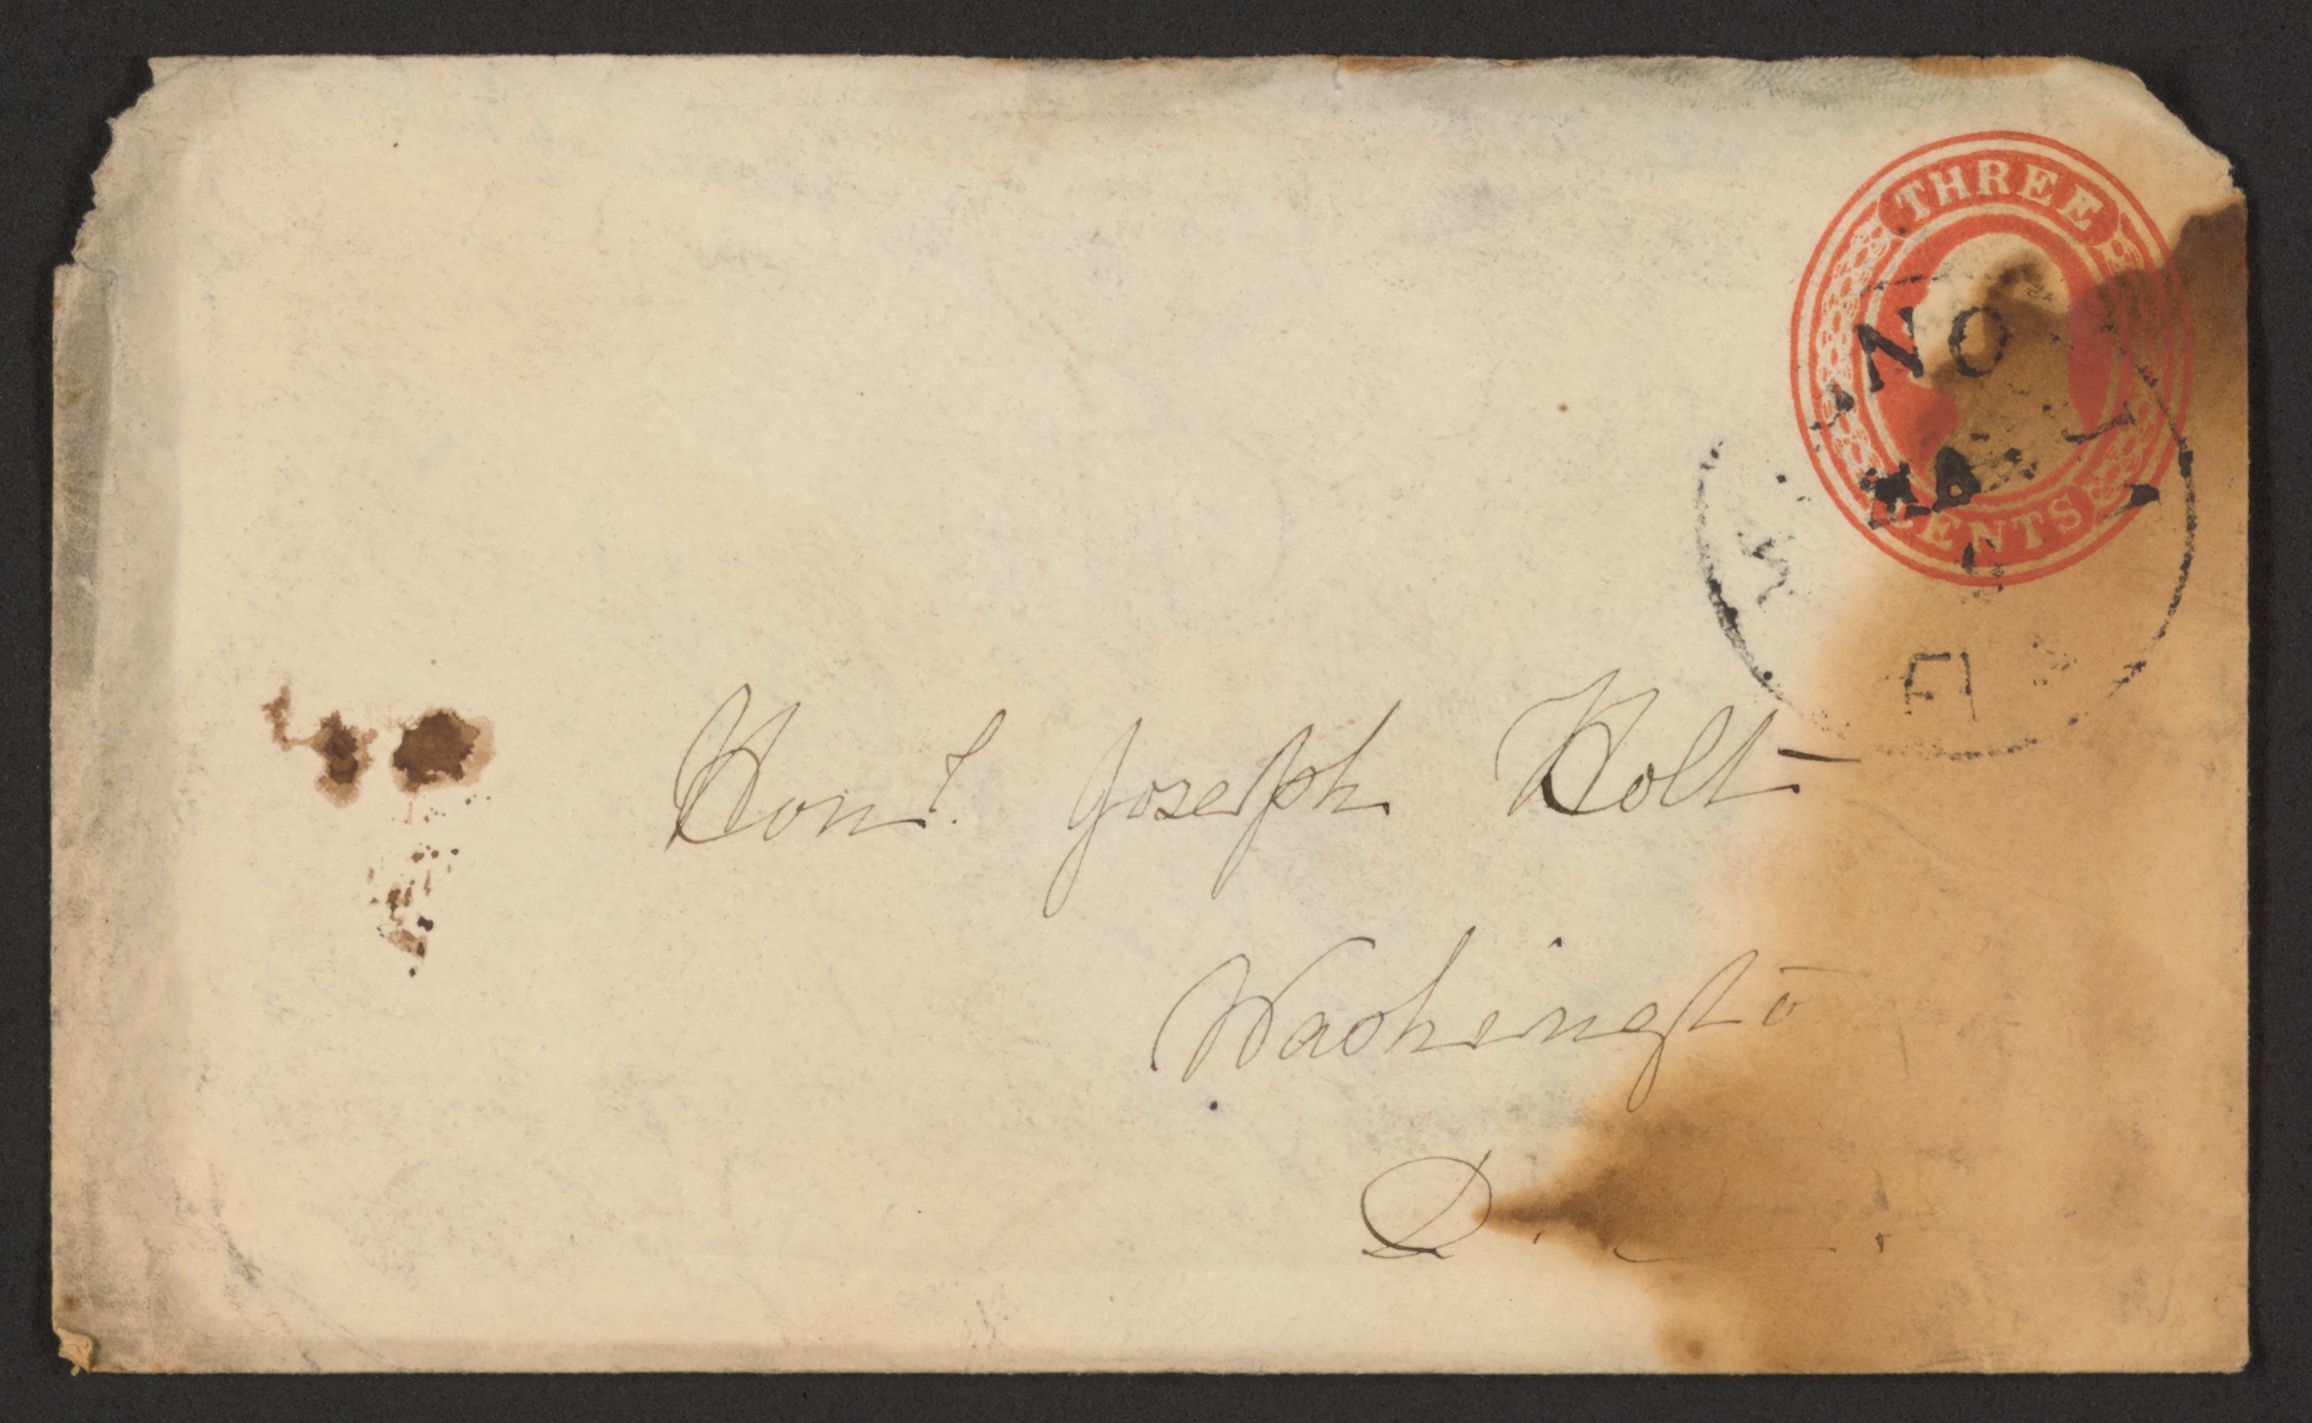 THREE
CENTS
Honl. Joseph Holt
Washingto
D.